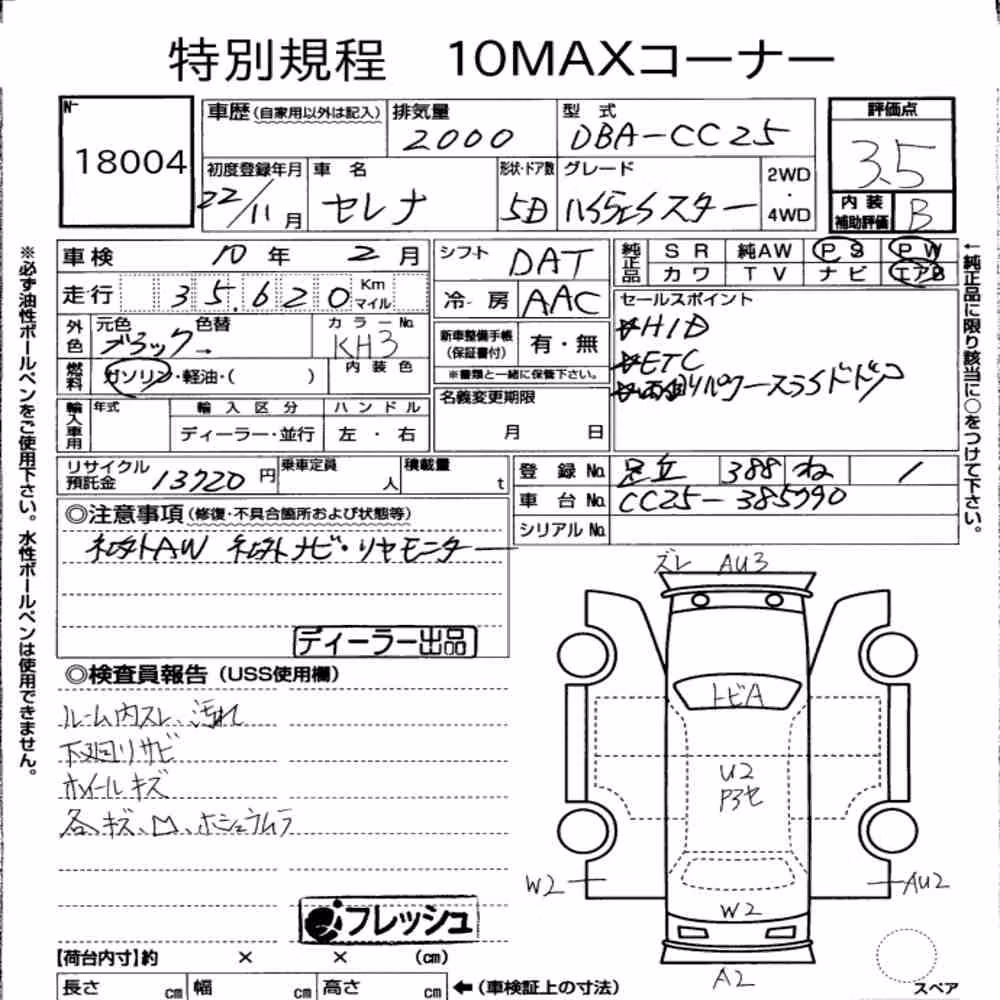 特別規程 10MAXコーナー
No
18004
車歴(自家用以外は記入)
排気量
2000
型 式
DBA-CC25
評価点
3.5
内装
補助評価
B
初度登録年月
22/11月
車 名
セレナ
形状・ドア数
5D
グレード
ハイウェイスター
2WD
・
4WD
車検 10年 2月
走行 35,620 Km マイル
シフト
DAT
冷 房
AAC
純正品
SR 純AW PS PW
カワ TV ナビ エアB
セールスポイント
☆HID
☆ETC
☆両側パワースライドドア
外色
元色 色替
ブラック→
カラーNo.
KH3
燃料
ガソリン・軽油・( )
内装色
新車整備手帳
(保証書付)
有・無
※書類と一緒に保管下さい。
名義変更期限
月 日
輸入車用
年式
輸入区分
ディーラー・並行
ハンドル
左・右
リサイクル
預託金
13720円
乗車定員
人
積載量
t
登録No. 足立 388 ね 1
車台No. CC25-385790
シリアルNo.
◎注意事項(修復・不具合箇所および状態等)
社外AW 社外ナビ・リヤモニター
ディーラー出品
◎検査員報告(USS使用欄)
ルーム内スレ、汚れ
下廻りサビ
ホイールキズ
各キズ、凹、ホシュウムラ
フレッシュ
ズレ AU3
トビA
U2
P3セ
W2
AU2
W2
A2
スペア
【荷台内寸】約 × × (cm)
長さ cm 幅 cm 高さ cm ←(車検証上の寸法)
※必ず油性ボールペンをご使用下さい。水性ボールペンは使用できません。
←純正品に限り該当に○をつけて下さい。